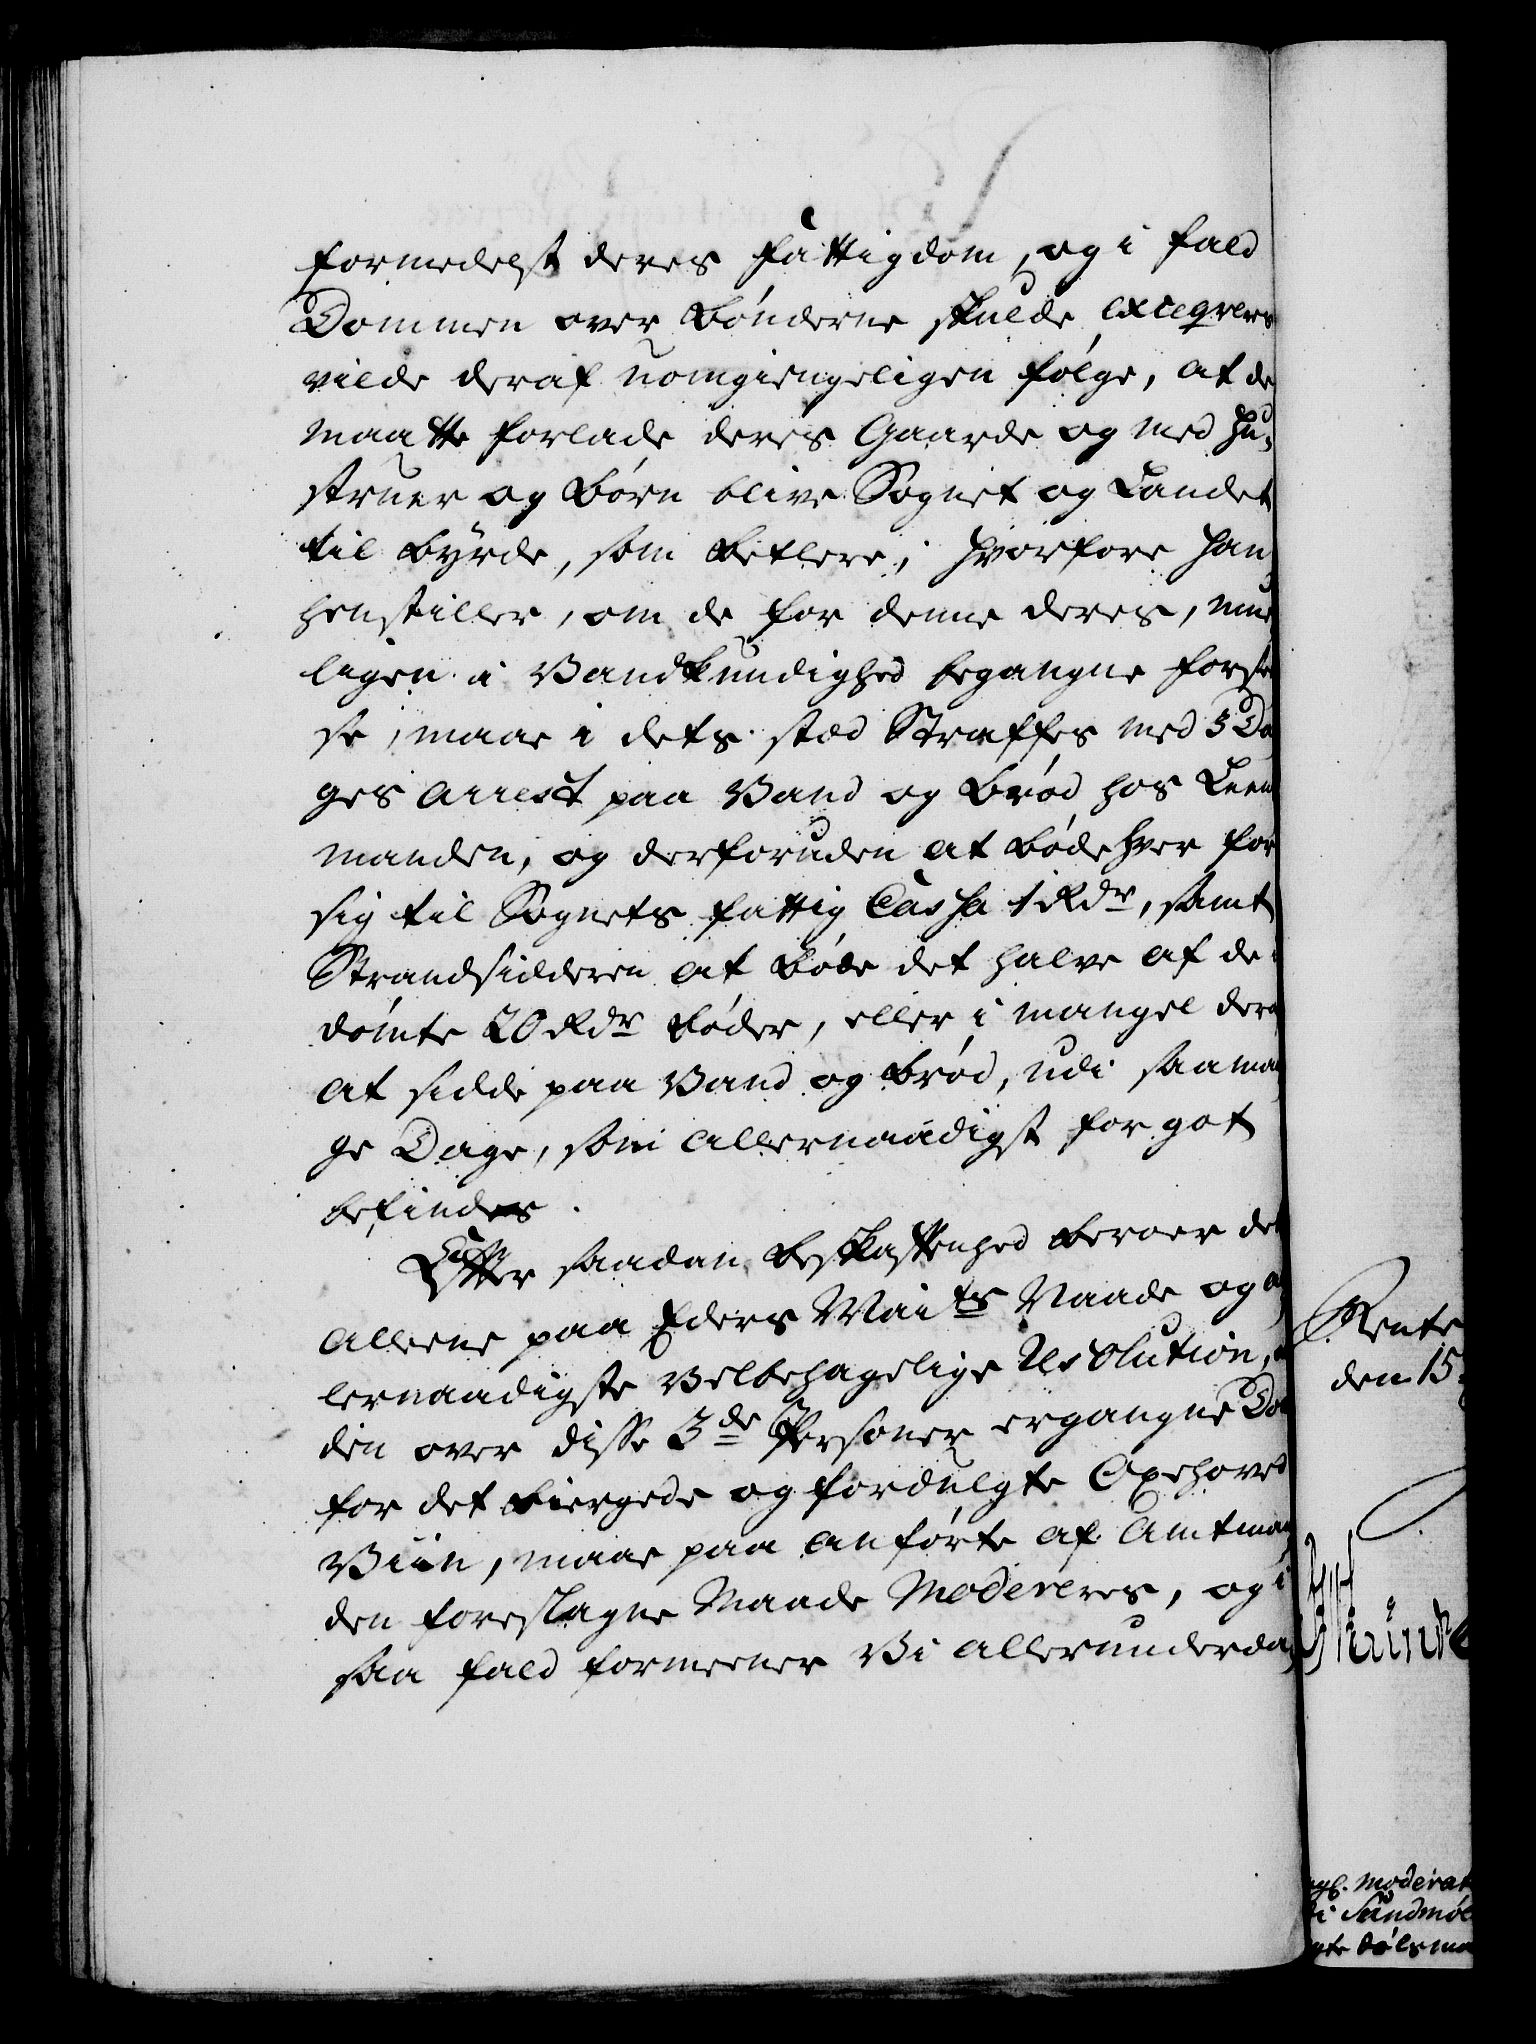 formedelst deres Fattigdom, og i fald
Dommen over Bønderne skulde exeqveres
vilde deraf uomgiengeligen følge, at de
maatte forlade deres Gaarde og med Hu-
struer og Børn blive Sognet og Landet
til Byrde, som Betlere; hvorfore han
henstiller, om de for denne deres,
ligen i Vandkundighed begangne Forse
se, maae i dets sted Straffes med 3 Da
ges Arrest paa Vand og Brød hos Leens
manden, og derforuden at bøde hver for
sig til Sognets fattig Cassa 1 Rdr, samt
Strandsidderen at bøde det halve af de i
dømte 20 Rdr Bøder, eller i mangel deraf
at sidde paa Vand og Brød, udi saa man
ge Dage, som Allernaadigst for got
befindes.
Efter saadan Beskaffenhed beroer det
alleene paa Eders Maits Naade og al
lernaadigste Velbehagelige Resolution,
den over disse 3de Personer ergangne Dom
for det biergede og fordulgte Oxehoved
Viin, maae paa anførte af Amtman
den foreslagne Maade Modereres, og i
saa fald formeener Vi allerunderda
Rente
den 15
Moderat
i Sundmøe